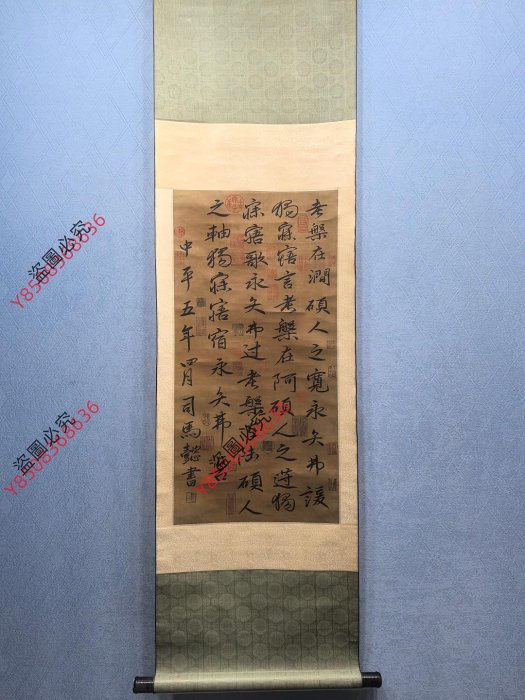 考槃在澗碩人之寬永矢弗諼
獨寐寤言考槃在阿碩人之薖獨
寐寤歌永矢弗过考槃在陸碩人
之軸獨寐寤宿永矢弗告
中平五年四月司馬懿書
盜圖必究
盜圖必究
盜圖必究